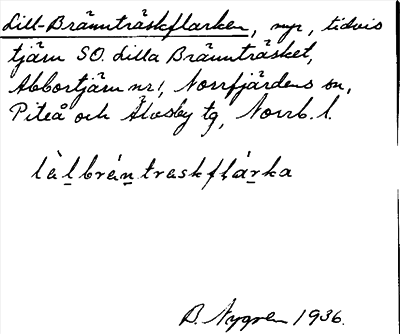 Lill-Brännträskflarken, myr, tidvis
tjärn SO. Lilla Brännträsket,
Abbortjärn nr 1, Norrfjärdens sn,
Piteå och Älvsby tg, Norrb. l.
làlbräntraskflárka
B. Nygren 1936.